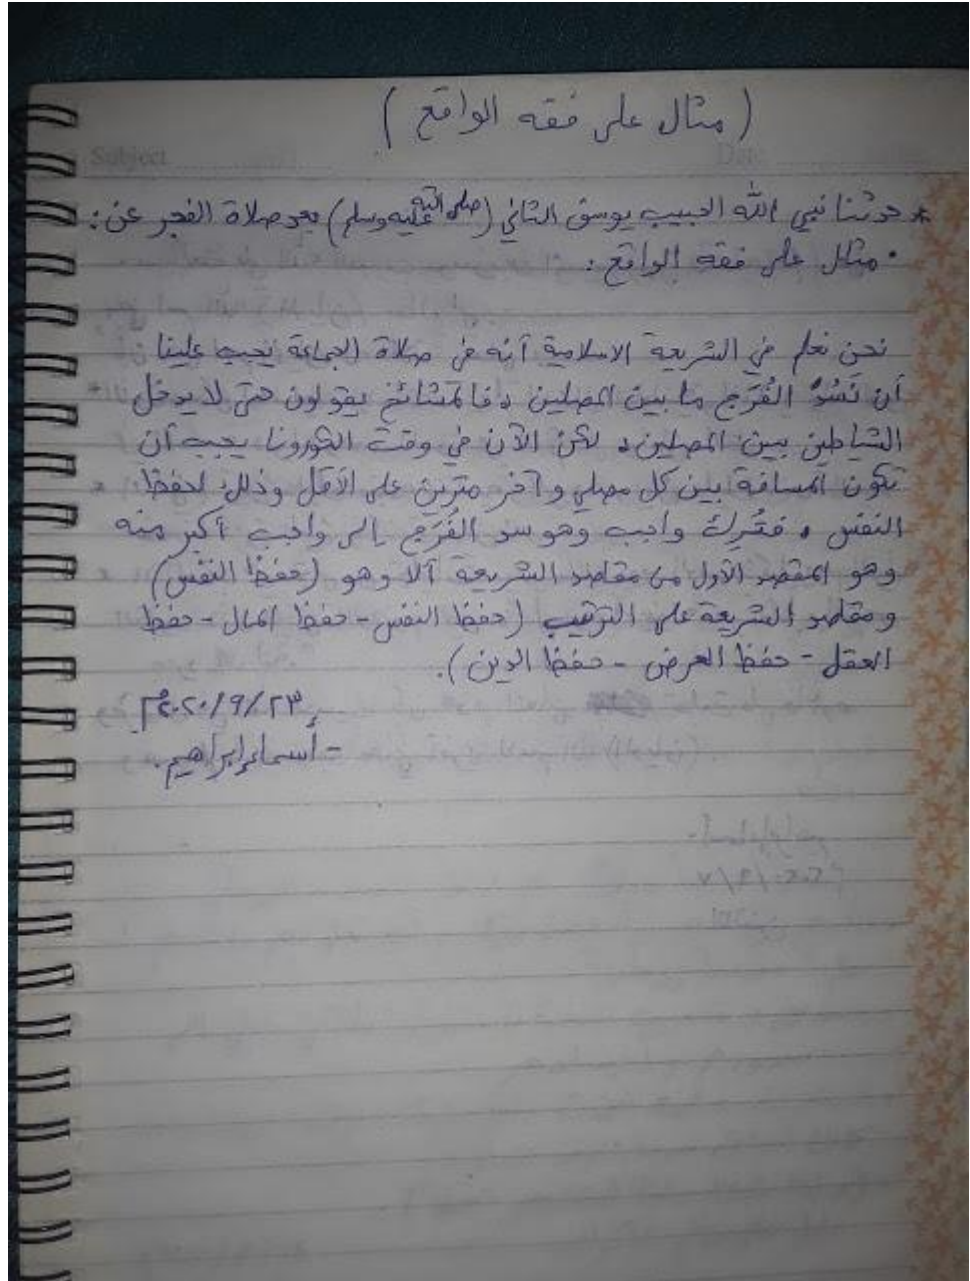 ( مثال على فقه الواقع )
Subject
Date
* حدثنا نبي الله الحبيب يوسف الثاني (صلى الله عليه وسلم) بعد صلاة الفجر عن :
• مثال على فقه الواقع :
نحن نعلم في الشريعة الاسلامية أنه في صلاة الجماعة يجب علينا
أن نَسُدَّ الفُرَج ما بين المصلين ، فالمشائخ يقولون حتى لا يدخل
الشياطين بين المصلين ، لكن الآن في وقت الكورونا يجب أن
تكون المسافة بين كل مصلي وآخر مترين على الأقل وذلك لحفظ
النفس ، فتُرِك واجب وهو سد الفُرَج إلى واجب أكبر منه
وهو المقصد الأول من مقاصد الشريعة ألا وهو (حفظ النفس)
ومقاصد الشريعة على الترتيب (حفظ النفس - حفظ المال - حفظ
العقل - حفظ العرض - حفظ الدين).
٢٠٢٠/٩/٢٣م
- أسماء إبراهيم.